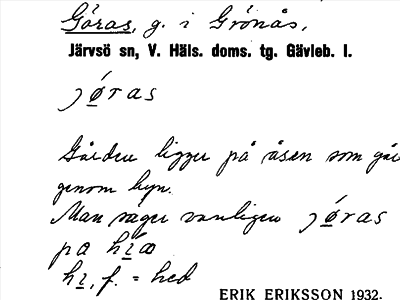 Göras, g. i Grönås,
Järvsö sn, V. Häls. doms. tg. Gävleb. l.
jǿras
Gården ligger på åsen som går
genom byn.
Man säger vanligen jǿras
pa hı̲́æ
hı̲, f. = hed
ERIK ERIKSSON 1932.